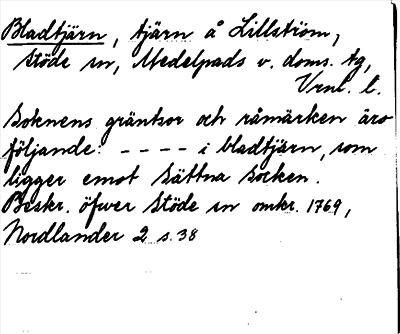 Bladtjärn, tjärn å Lillström,
Stöde sn, Medelpads v. doms. tg,
Vrnl. l.
Soknens gräntsor och råmärken äro
följande: - - - - i bladtjärn, som
ligger emot Sättna Socken.
Beskr. öfwer Stöde sn omkr. 1769,
Nordlander 2 s. 38